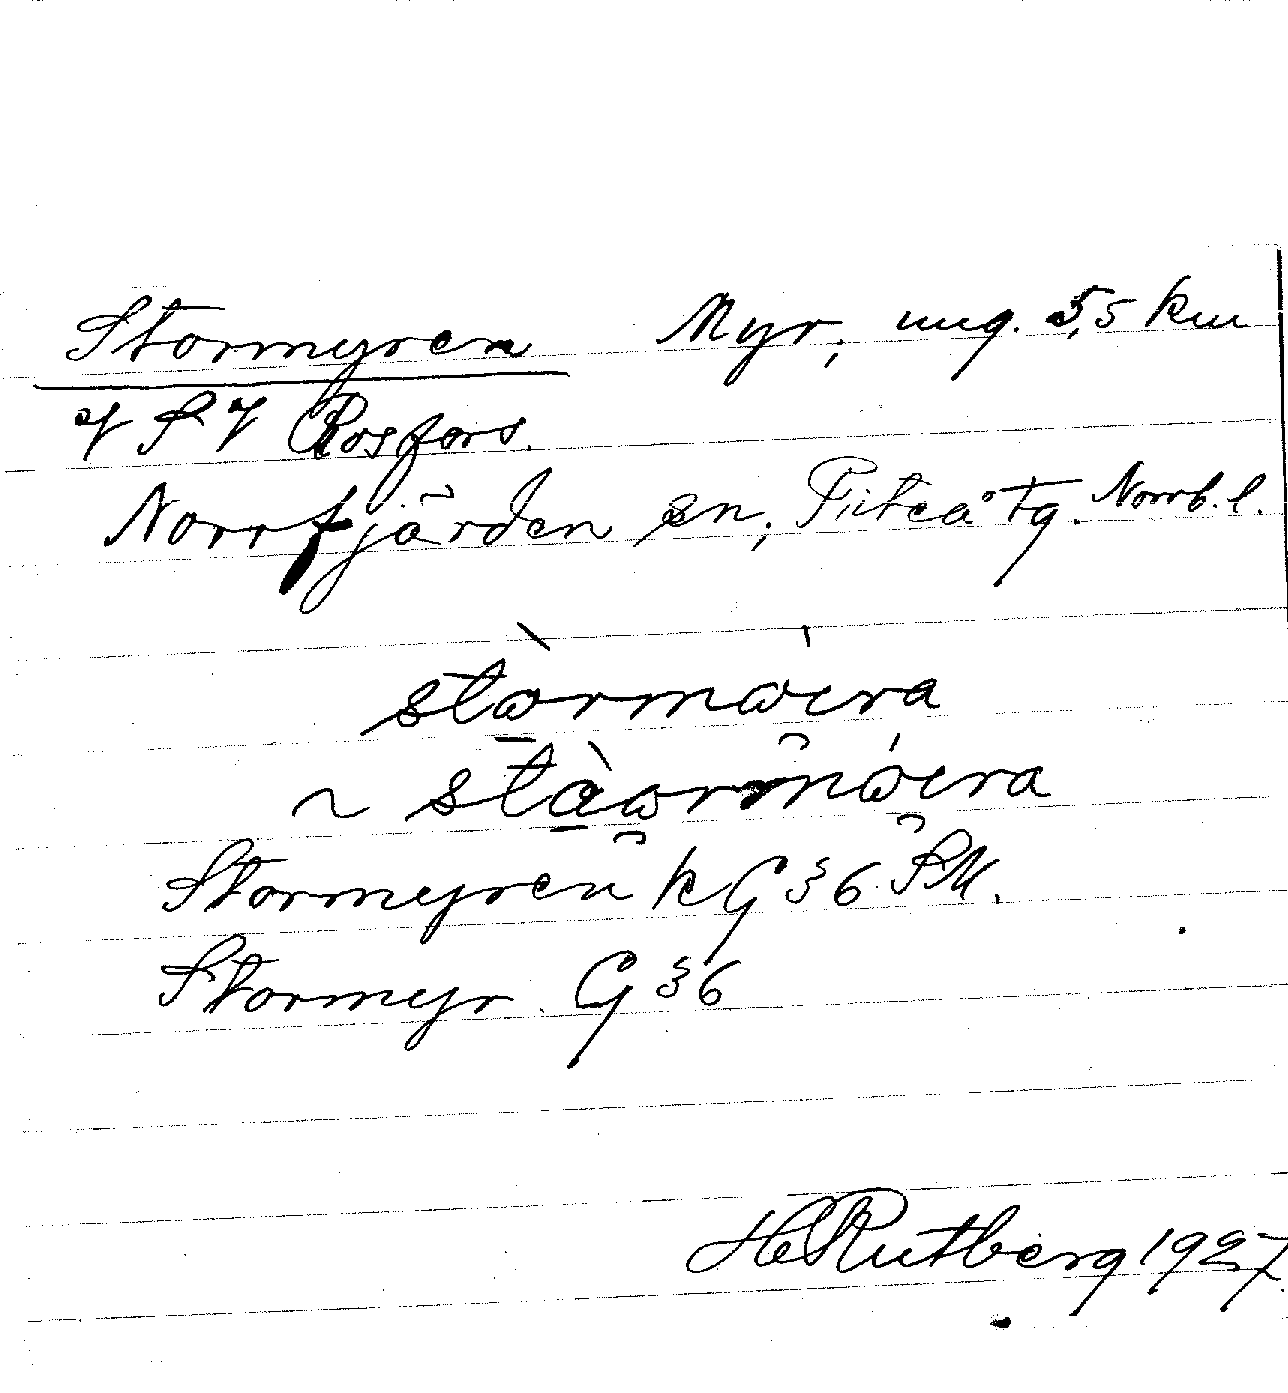 Stormyren Myr, ung. 5,5 km
v S v Rosfors.
Norrfjärden sn, Piteå tg. Norrb. l.
stòrmóira
~ stàormóira
Stormyren k G § 6 SM.
Stormyr G § 6
H Rutberg 1927